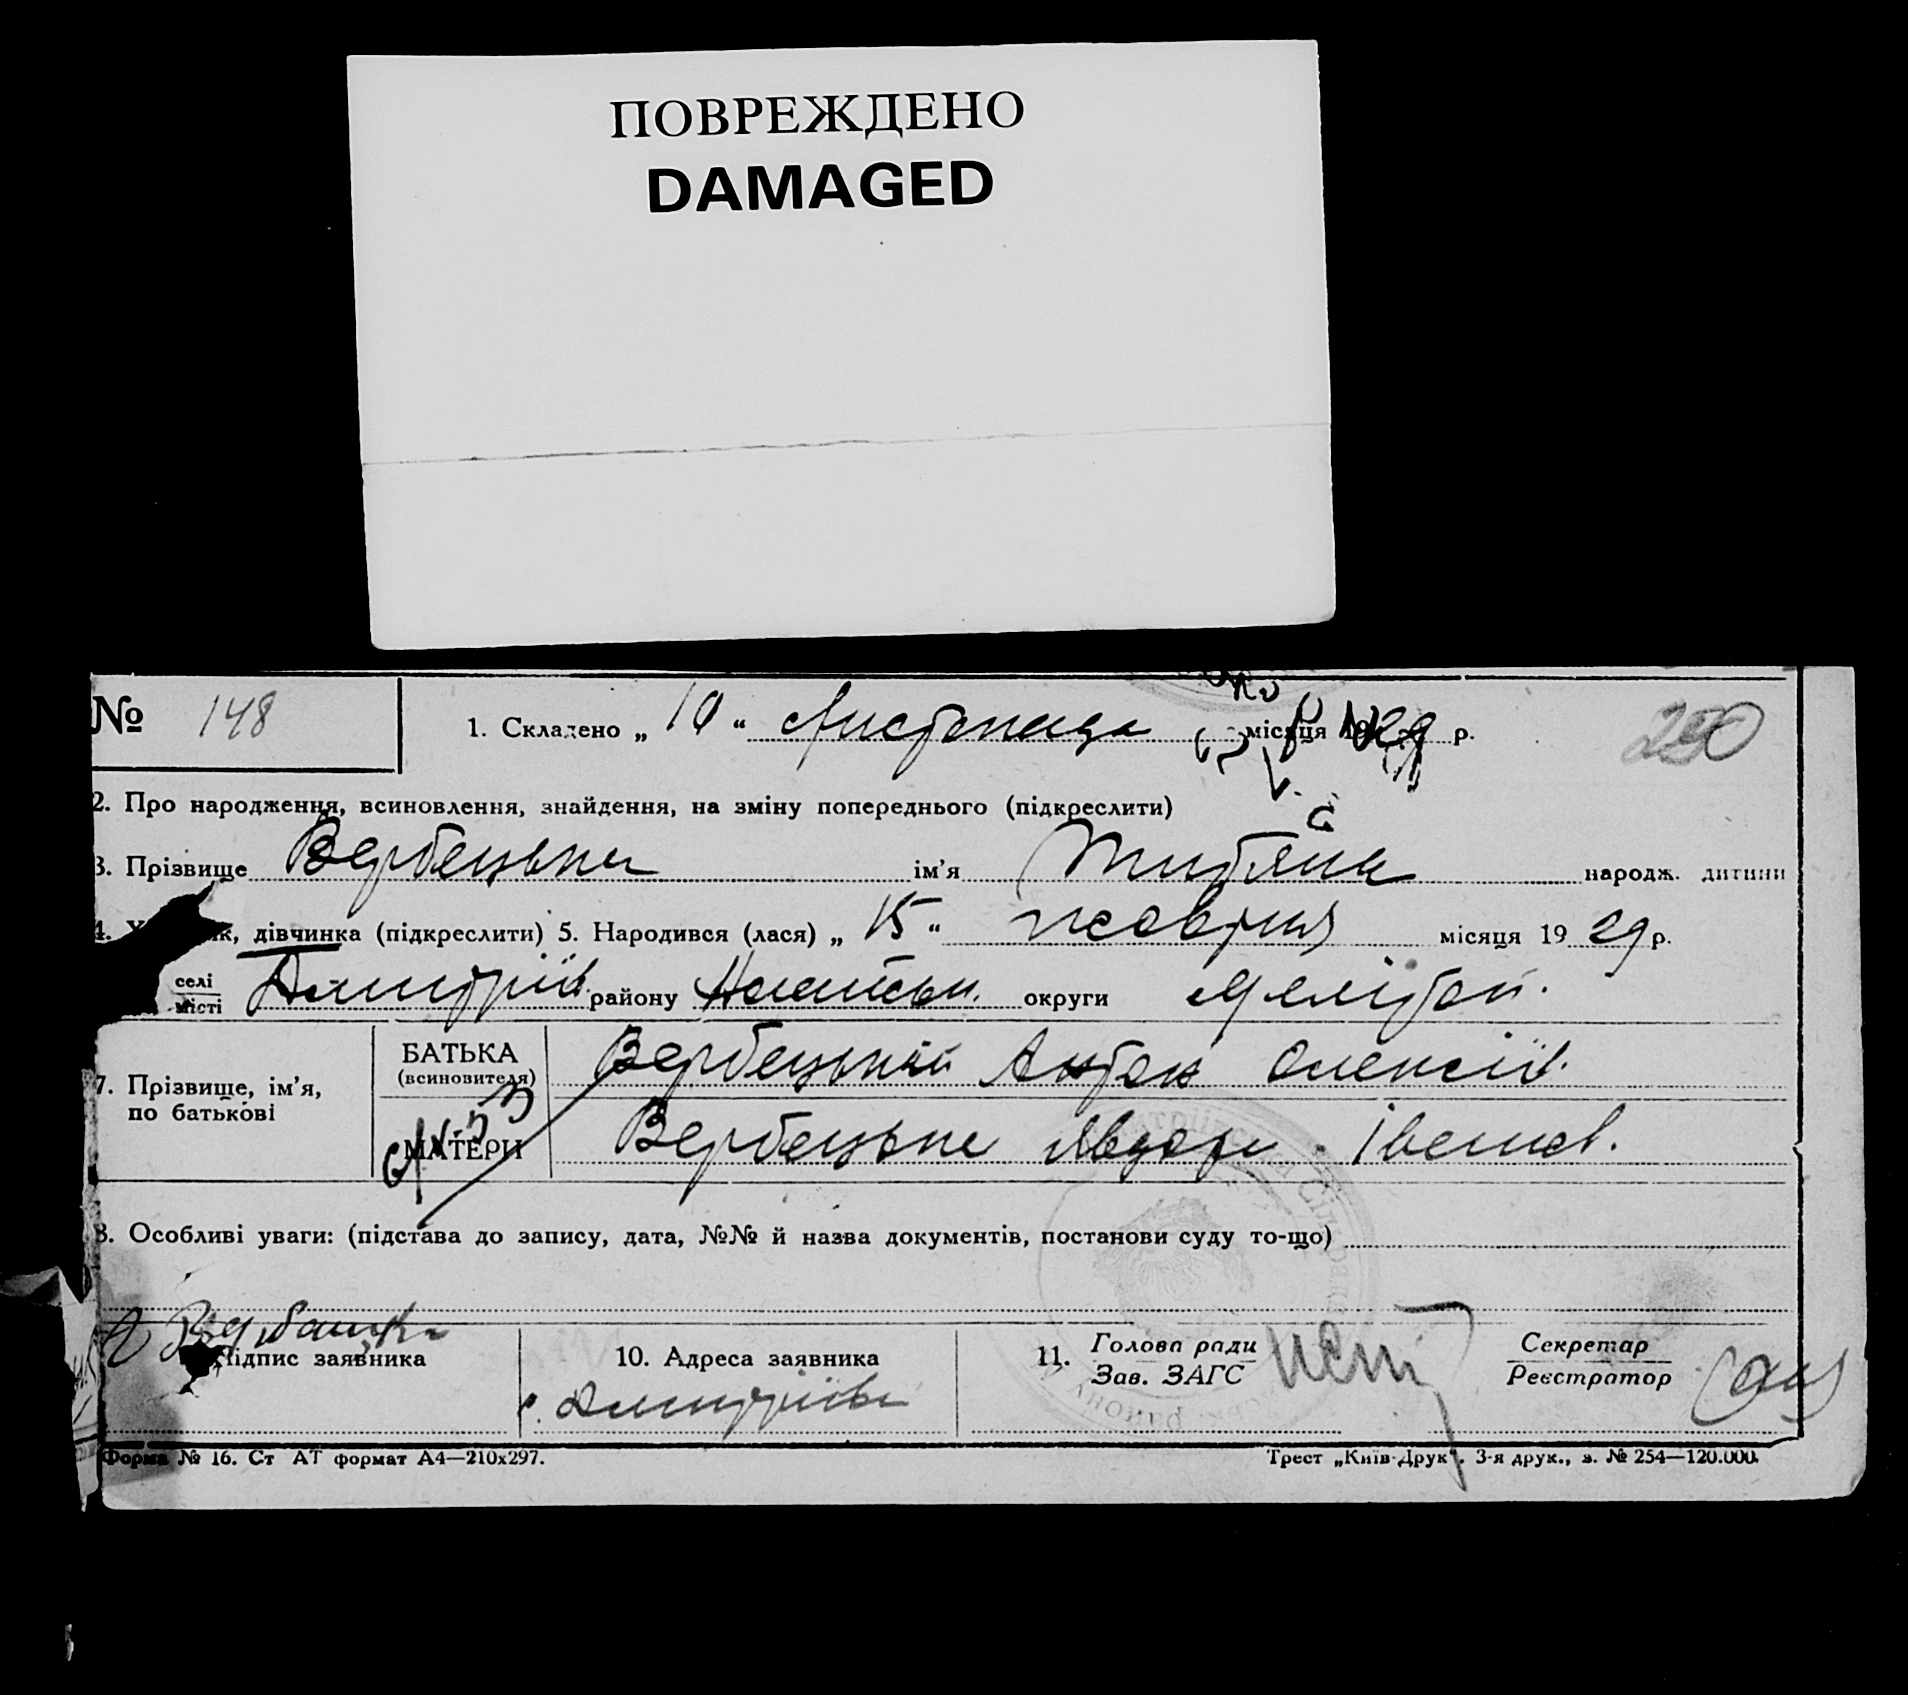 ПОВРЕЖДЕНО
DAMAGED
№ 148
1. Складено „ 10 “ Листопада місяця 1929 р.
250
2. Про народження, всиновлення, знайдення, на зміну попереднього (підкреслити)
3. Прізвище Вербецька ім’я Титяна народж. дитини
4. Х к, дівчинка (підкреслити) 5. Народився (лася) „ 15 “ жовтня місяця 19 29 р.
селі
місті Дмитрів. району округи Мелітоп.
7. Прізвище, ім’я, по батькові
БАТЬКА (всиновителя) Вербецький Антон Олексіїв.
МАТЕРИ Вербецька Явдоха Іванов.
8. Особливі уваги: (підстава до запису, дата, №№ й назва документів, постанови суду то-що)
Вербацка
Підпис заявника
10. Адреса заявника
с. Дмитрівка
11. Голова ради
Зав. ЗАГС
Секретар
Реєстратор
Форма № 16. Ст АТ формат А4—210х297.
Трест „Київ-Друк“. 3-я друк., з. № 254—120.000.